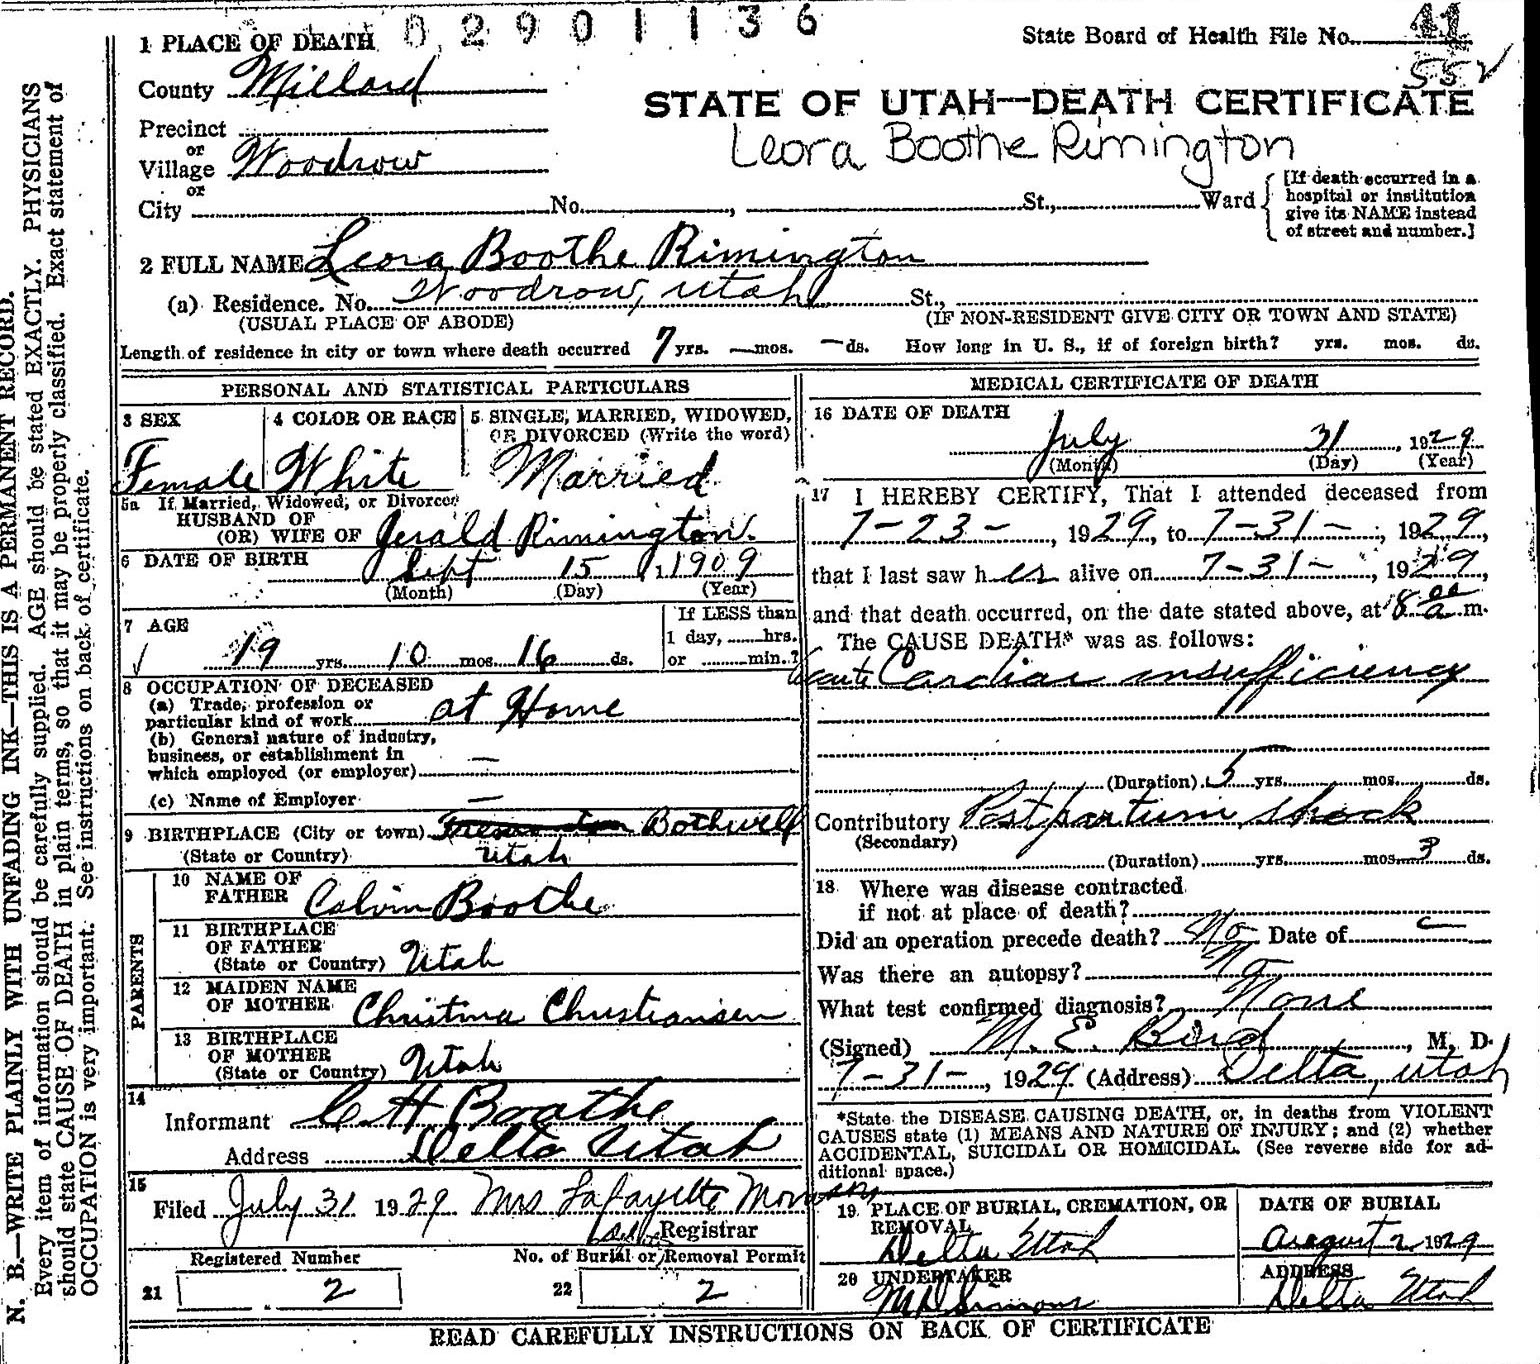 02901136
State Board of Health File No. 41
552
1 PLACE OF DEATH
County Millard
STATE OF UTAH—DEATH CERTIFICATE
Leora Boothe Rimington
Precinct
or
Village Woodrow
or
City No. , St., Ward
[If death occurred in a hospital or institution give its NAME instead of street and number.]
2 FULL NAME Leora Boothe Rimington
(a) Residence. No. Woodrow, Utah St.,
(USUAL PLACE OF ABODE) (IF NON-RESIDENT GIVE CITY OR TOWN AND STATE)
Length of residence in city or town where death occurred 7 yrs. — mos. — ds. How long in U. S., if of foreign birth? yrs. mos. ds.
PERSONAL AND STATISTICAL PARTICULARS
3 SEX
Female
4 COLOR OR RACE
White
5 SINGLE, MARRIED, WIDOWED, OR DIVORCED (Write the word)
Married
5a If Married, Widowed, or Divorced
HUSBAND OF
(OR) WIFE OF Jerald Rimington.
6 DATE OF BIRTH
Sept 15, 1909
(Month) (Day) (Year)
7 AGE
19 yrs. 10 mos. 16 ds.
If LESS than
1 day, hrs.
or min.?
8 OCCUPATION OF DECEASED
(a) Trade, profession or
particular kind of work at Home
(b) General nature of industry,
business, or establishment in
which employed (or employer) —
(c) Name of Employer —
9 BIRTHPLACE (City or town) Bothwell
(State or Country) Utah
PARENTS
10 NAME OF
FATHER Calvin Boothe
11 BIRTHPLACE
OF FATHER
(State or Country) Utah
12 MAIDEN NAME
OF MOTHER Christina Christiansen
13 BIRTHPLACE
OF MOTHER
(State or Country) Utah
14
Informant C H Boothe
Address Delta Utah
15
Filed July 31 1929 Mrs Lafayette
Registrar
Registered Number
21 2
No. of Burial or Removal Permit
22 2
MEDICAL CERTIFICATE OF DEATH
16 DATE OF DEATH
July 31, 1929
(Month) (Day) (Year)
17 I HEREBY CERTIFY, That I attended deceased from
7-23-, 1929, to 7-31-, 1929,
that I last saw her alive on 7-31-, 1929,
and that death occurred, on the date stated above, at 8 00 a. m.
The CAUSE DEATH* was as follows:
Acute Cardiac insufficiency
(Duration) 5 yrs. mos. ds.
Contributory Postpartum shock
(Secondary)
(Duration) yrs. mos. 3 ds.
18 Where was disease contracted
if not at place of death?
Did an operation precede death? No Date of —
Was there an autopsy? No
What test confirmed diagnosis? None
(Signed) M. E. Bird, M. D.
7-31-, 1929 (Address) Delta, Utah
*State the DISEASE CAUSING DEATH, or, in deaths from VIOLENT
CAUSES state (1) MEANS AND NATURE OF INJURY; and (2) whether
ACCIDENTAL, SUICIDAL OR HOMICIDAL. (See reverse side for ad-
ditional space.)
19 PLACE OF BURIAL, CREMATION, OR
REMOVAL
Delta Utah
DATE OF BURIAL
August 2 1929
20 UNDERTAKER
ADDRESS
Delta Utah
READ CAREFULLY INSTRUCTIONS ON BACK OF CERTIFICATE
N. B.—WRITE PLAINLY WITH UNFADING INK—THIS IS A PERMANENT RECORD.
Every item of information should be carefully supplied. AGE should be stated EXACTLY. PHYSICIANS
should state CAUSE OF DEATH in plain terms, so that it may be properly classified. Exact statement of
OCCUPATION is very important. See instructions on back of certificate.